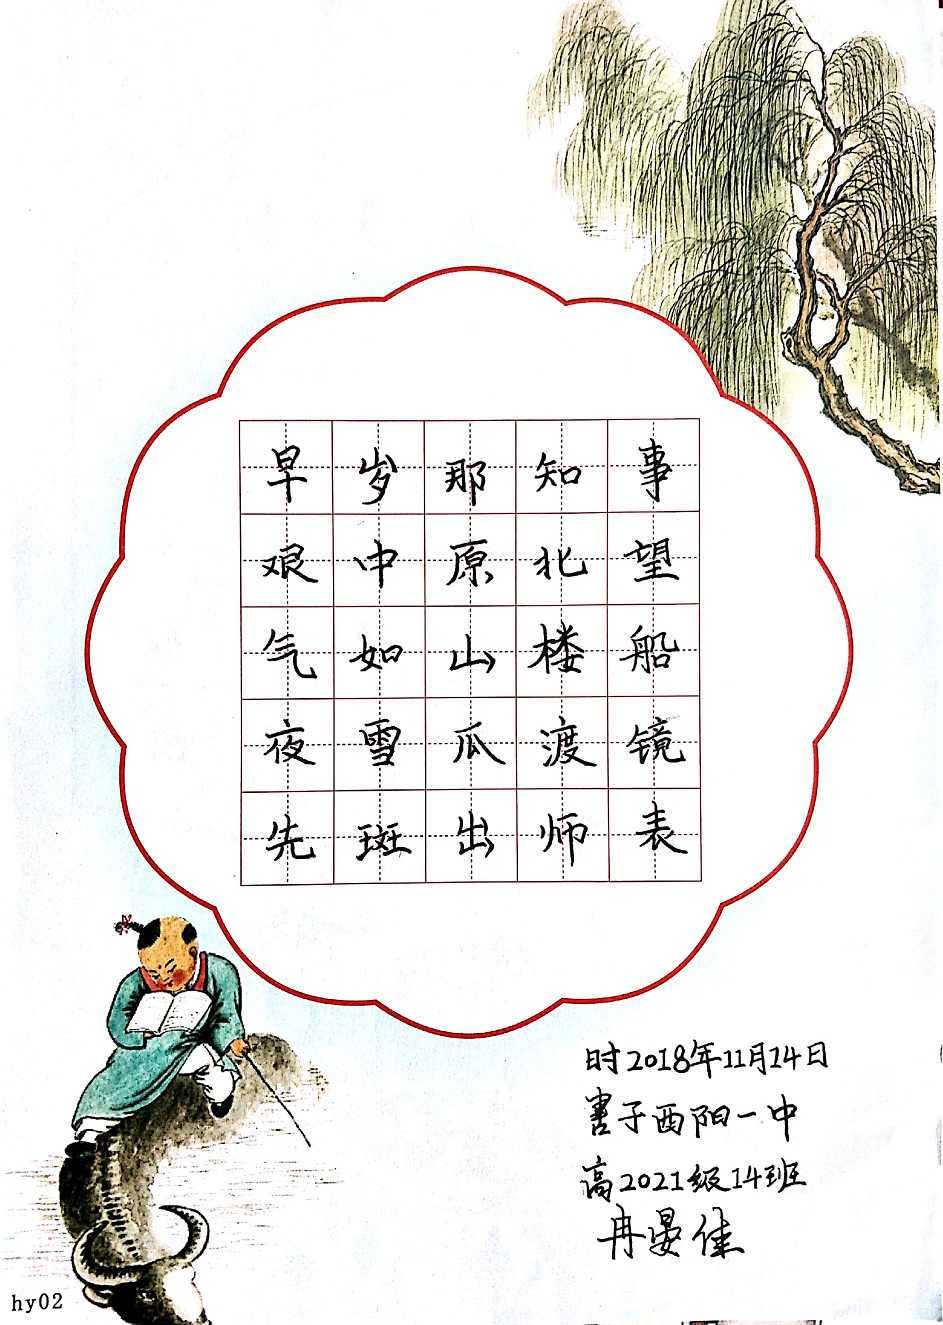 早岁那知事
艰中原北望
气如山楼船
夜雪瓜渡镜
先斑出师表
时2018年11月14日
書于酉阳一中
高2021级14班
冉晏佳
hy02